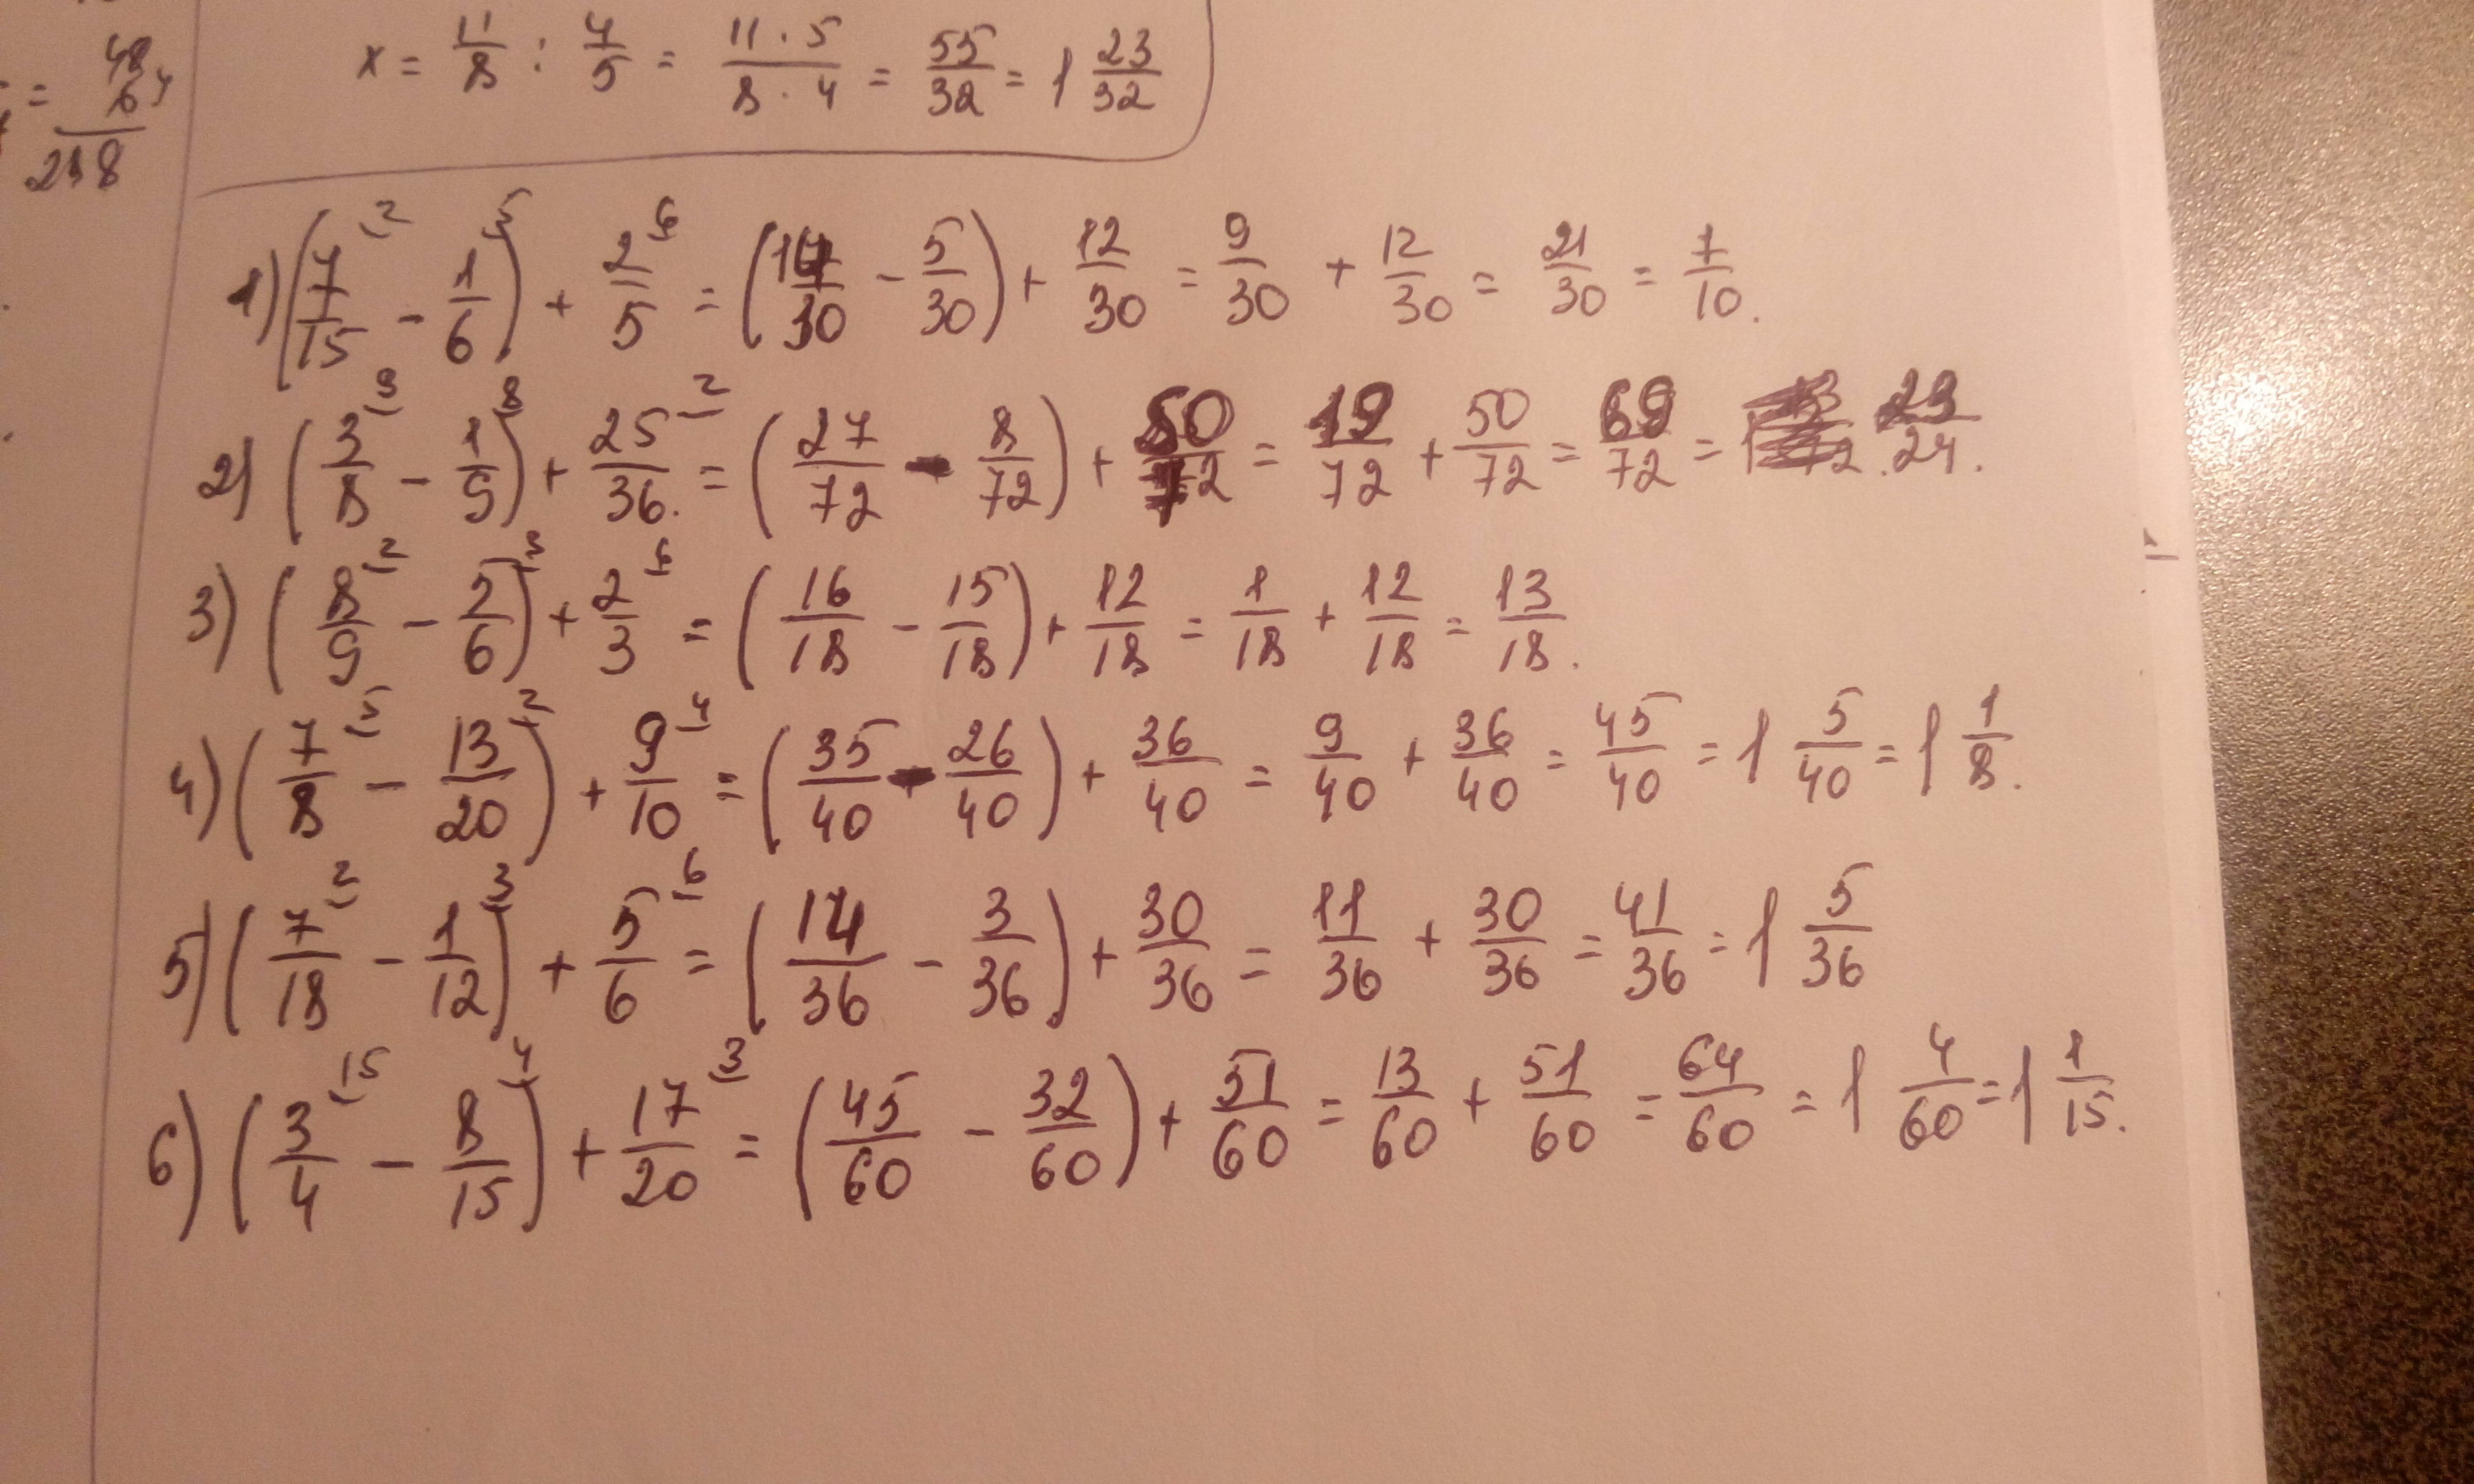 = 48/6 4
218
x = 11/8 : 4/5 = 11 · 5/8 · 4 = 55/32 = 1 23/32
1) (7/15 (2 - 1/6 (5) + 2/5 (6 = (14/30 - 5/30) + 12/30 = 9/30 + 12/30 = 21/30 = 7/10.
2) (3/8 (9 - 1/9 (8) + 25/36 (2 = (27/72 - 8/72) + 50/72 = 19/72 + 50/72 = 69/72 = 23/24.
3) (8/9 (2 - 5/6 (3) + 2/3 (6 = (16/18 - 15/18) + 12/18 = 1/18 + 12/18 = 13/18.
4) (7/8 (5 - 13/20 (2) + 9/10 (4 = (35/40 - 26/40) + 36/40 = 9/40 + 36/40 = 45/40 = 1 5/40 = 1 1/8.
5) (7/18 (2 - 1/12 (3) + 5/6 (6 = (14/36 - 3/36) + 30/36 = 11/36 + 30/36 = 41/36 = 1 5/36
6) (3/4 (15 - 8/15 (4) + 17/20 (3 = (45/60 - 32/60) + 51/60 = 13/60 + 51/60 = 64/60 = 1 4/60 = 1 1/15.